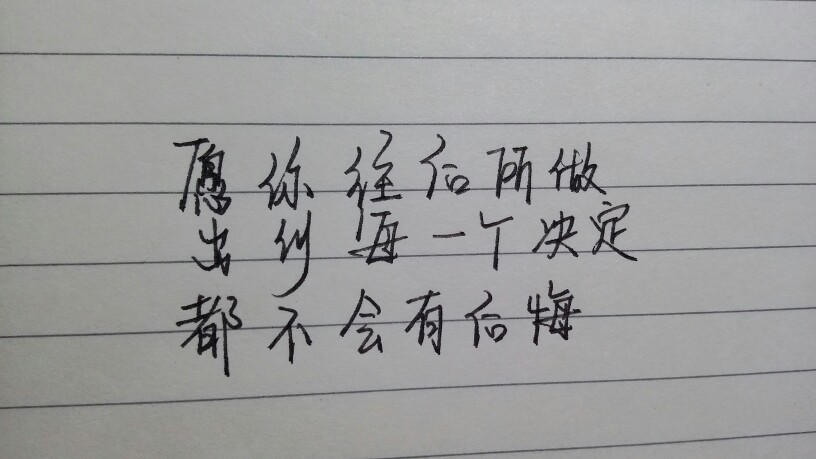 愿你往后所做
出的每一个决定
都不会有后悔